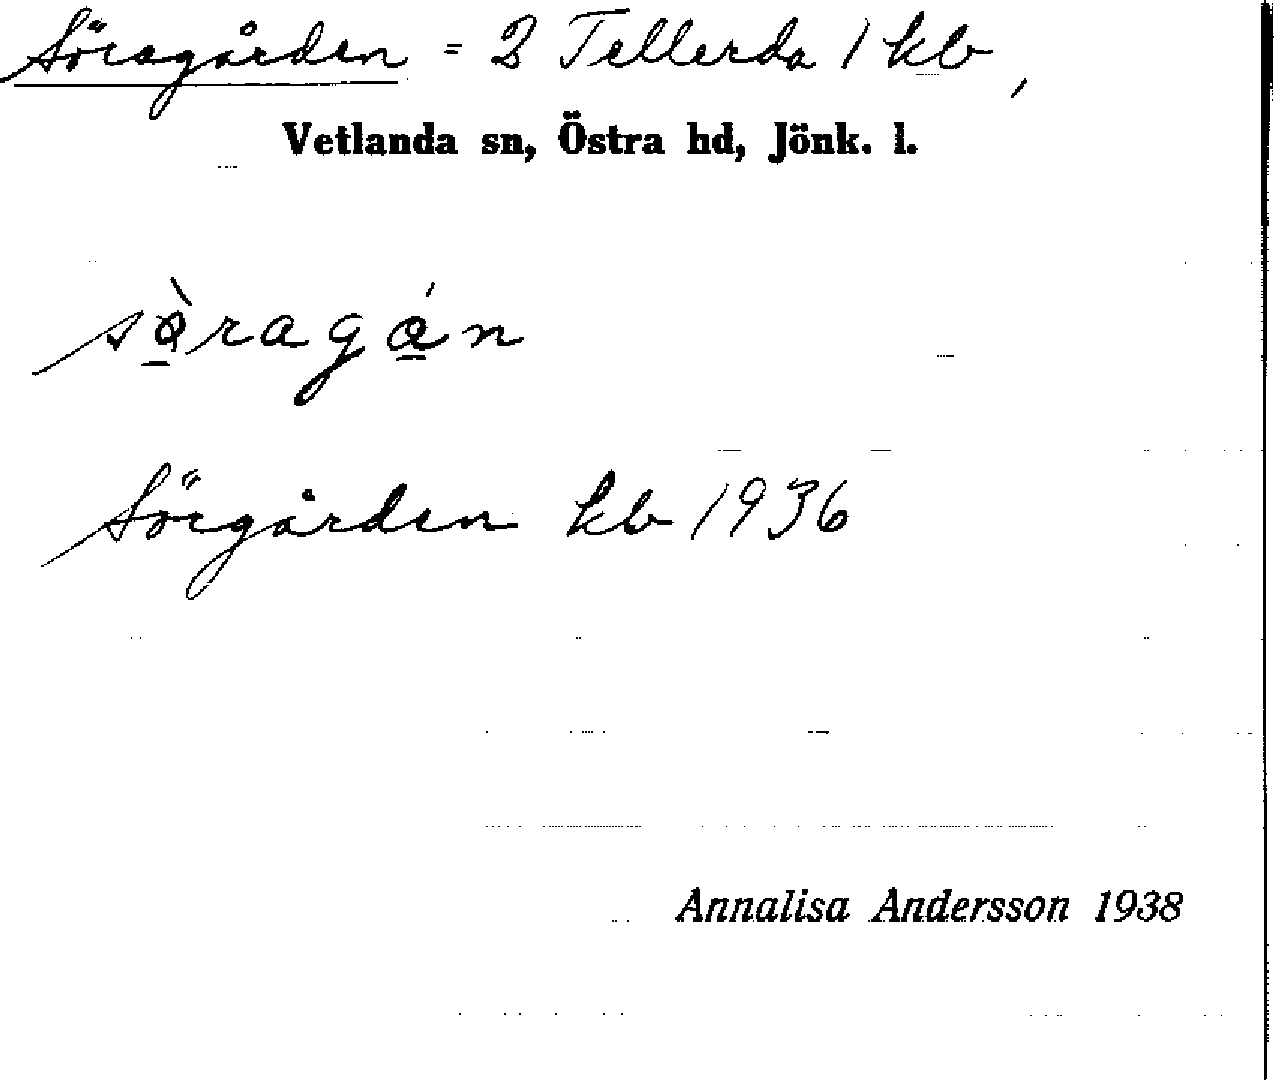 Söragården = 2 Tellerda 1 kb,
Vetlanda sn, Östra hd, Jönk. l.
sø̲̀ragá̲n
Sörgården kb 1936
Annalisa Andersson 1938